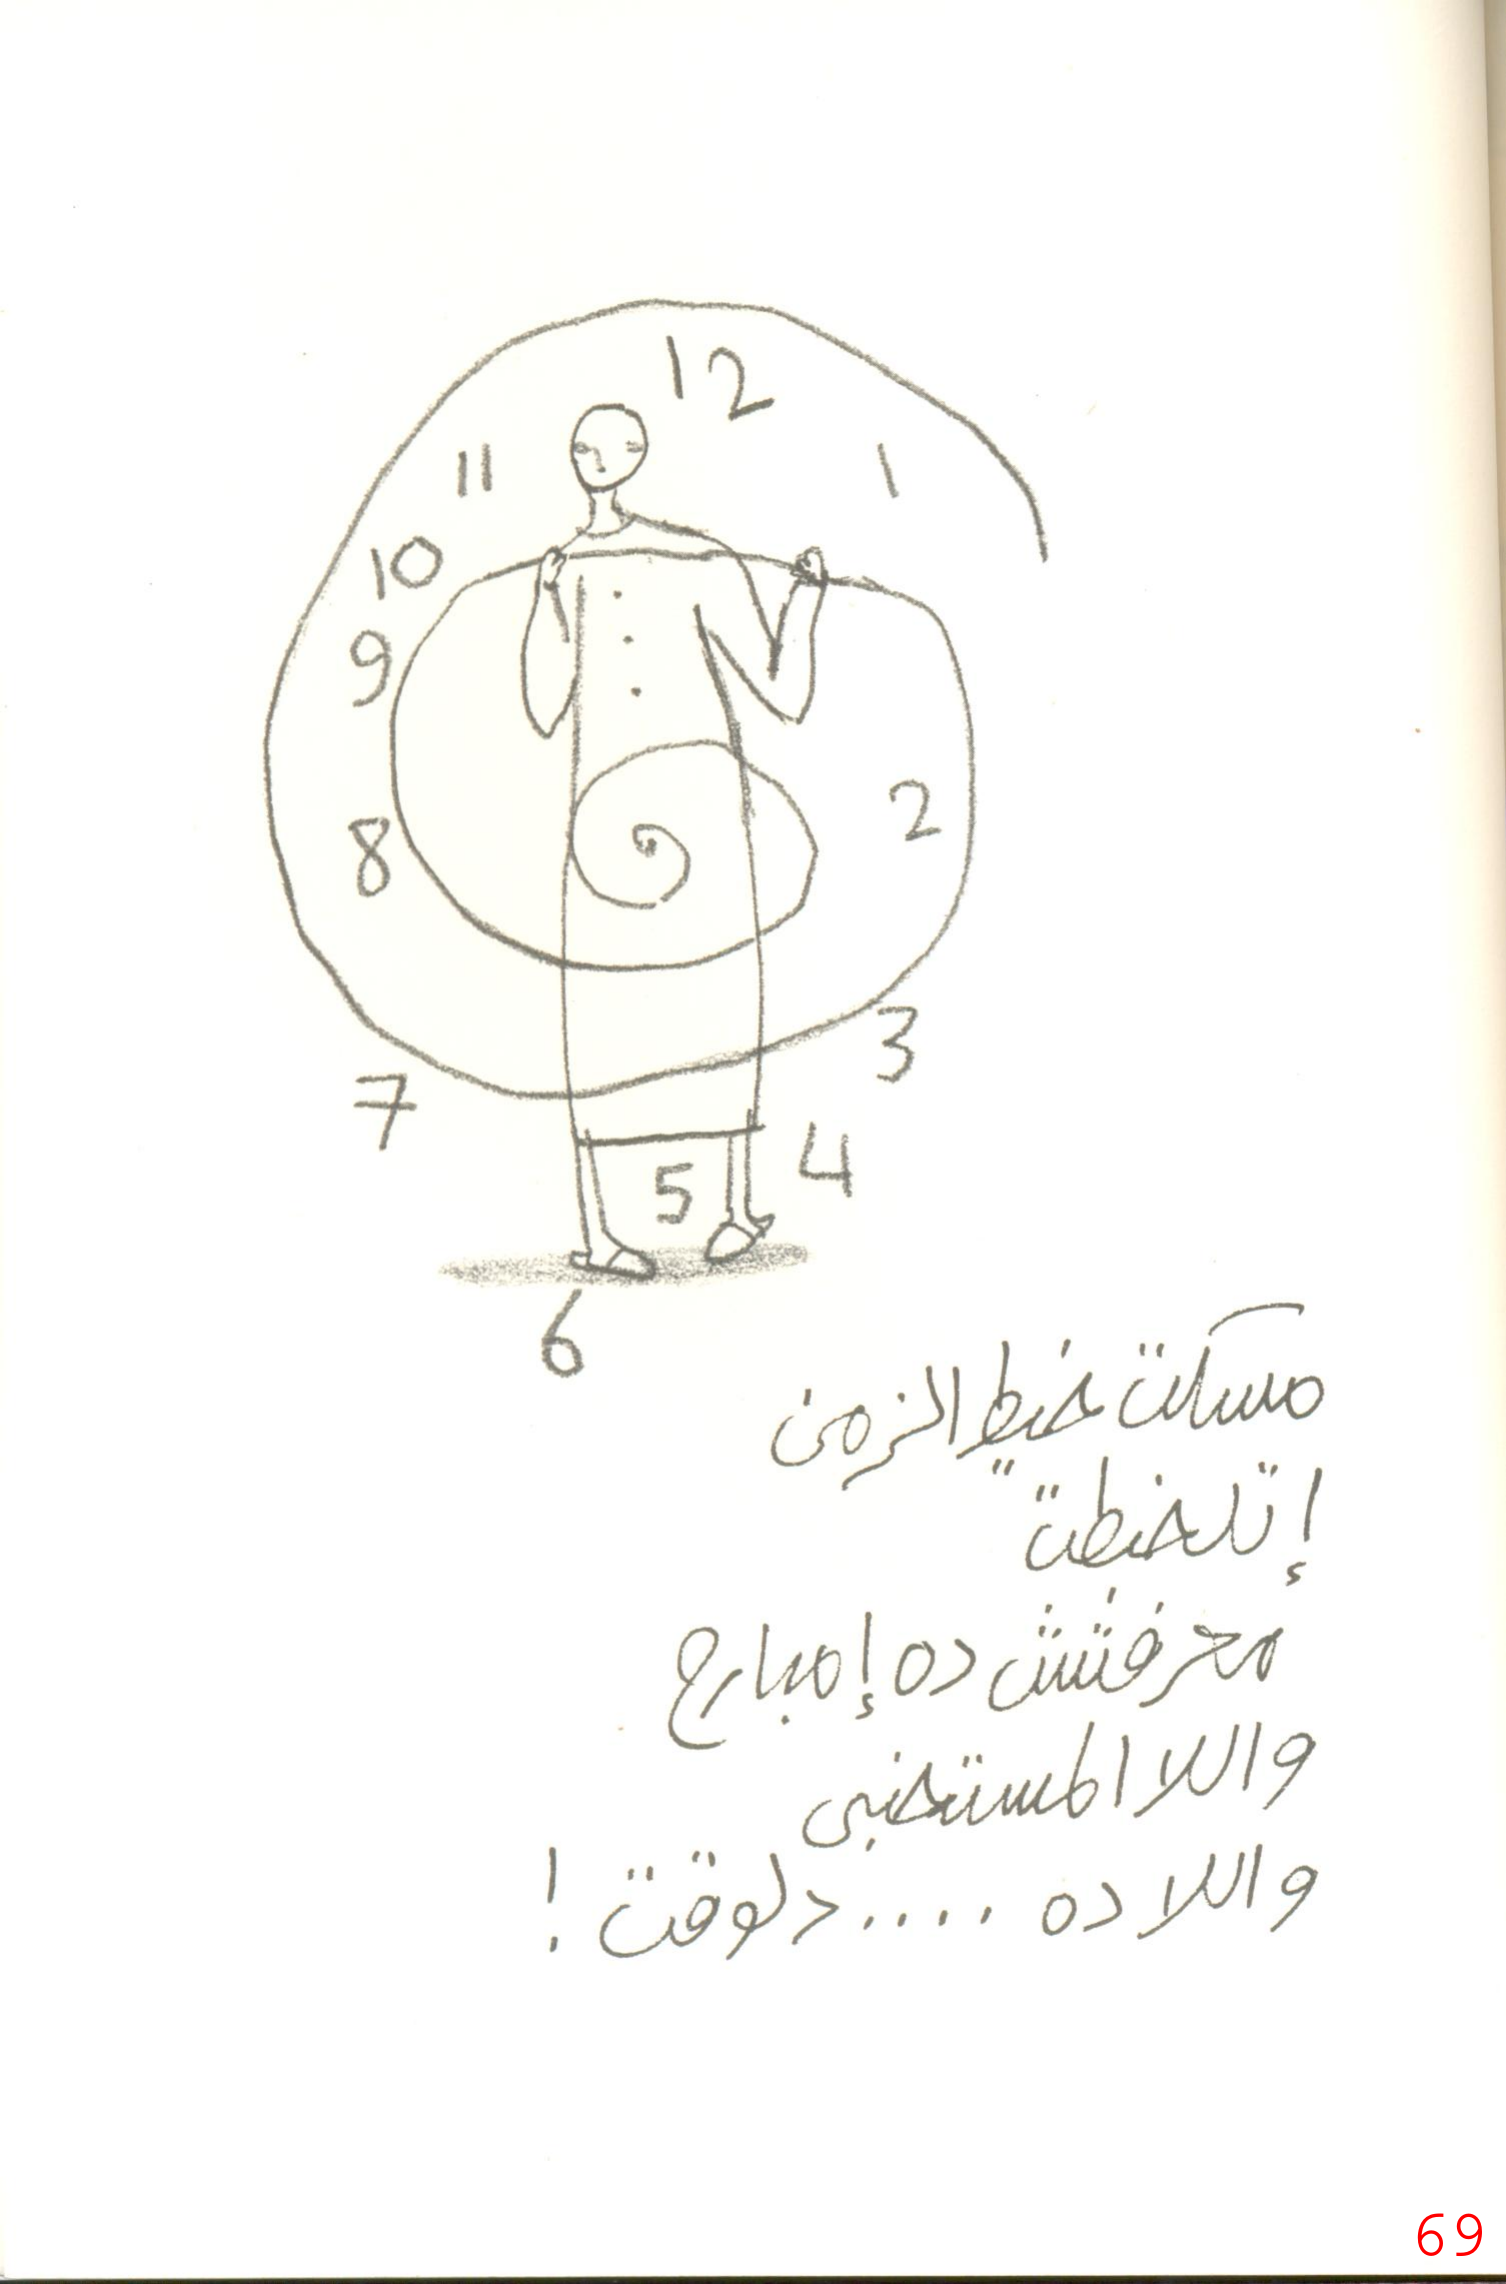 12
11
1
10
9
2
8
3
7
4
5
6
مسكت خيط الزمن
إتلخبطت
معرفتش ده إمبارح
واللا المستخبى
واللا ده .... دلوقت !
69